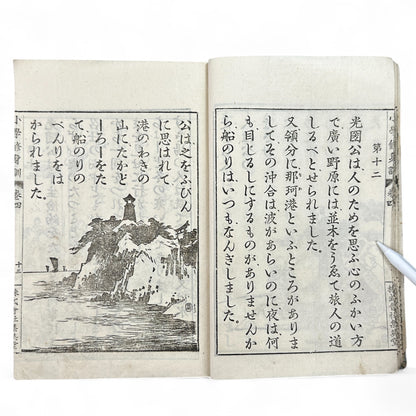 第十二
光圀公は人のためを思ふ心の、ふかい方
で、廣い野原には並木をうゑて、旅人の道
しるべとせられました。
又領分に、那珂港といふところがありま
してその沖合は波があらいのに夜は何
も目じるしにするものがありませんか
ら、船のりはいつもなんぎしました。
公は之をふびん
に思はれ
港のわきの
山にたかど
ーろーをた
て船のりの
べんりをは
かられました。
小學修身訓 卷四
十二